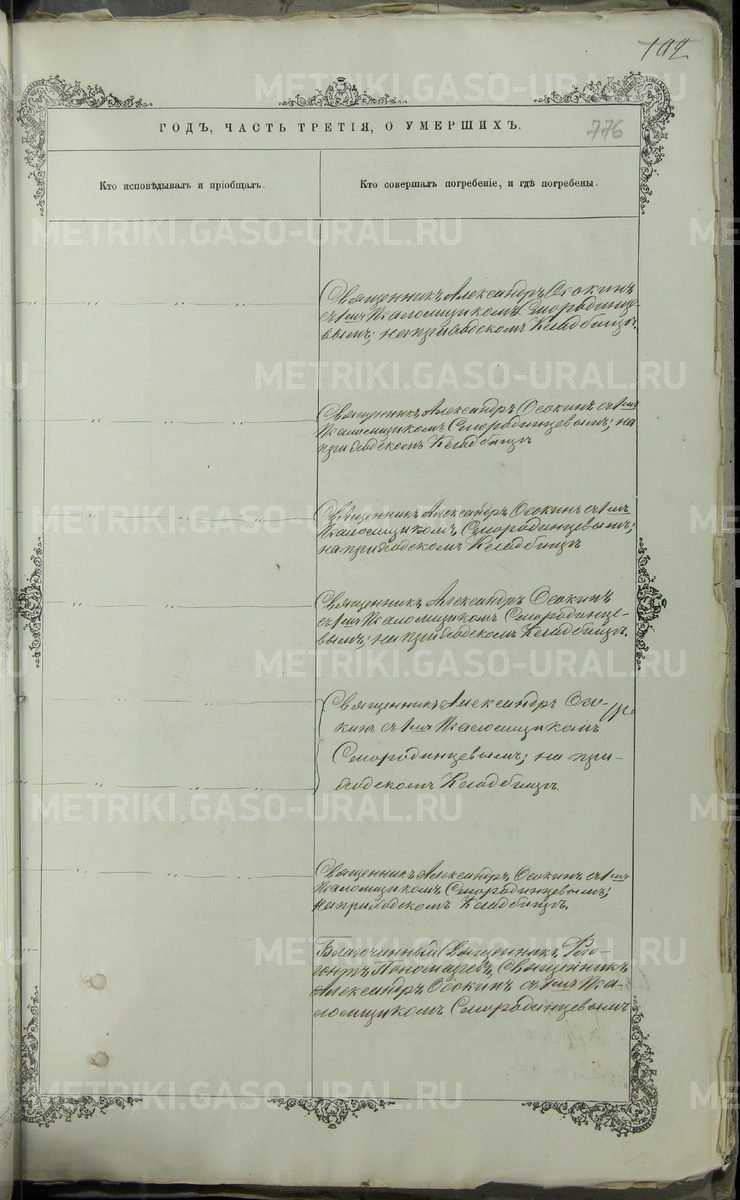 192
ГОДЪ, ЧАСТЬ ТРЕТІЯ, О УМЕРШИХЪ.
776
Кто исповѣдывалъ и пріобщалъ.
Кто совершалъ погребеніе, и гдѣ погребены.
Священникъ Александръ Осокинъ
съ Псаломщикомъ Смородинце-
вымъ; на приходскомъ Кладбищѣ.
Священникъ Александръ Осокинъ съ
Псаломщикомъ Смородинцевымъ; на
приходскомъ Кладбищѣ
Священникъ Александръ Осокинъ съ
Псаломщикомъ Смородинцевымъ;
на приходскомъ Кладбищѣ
Священникъ Александръ Осокинъ
съ Псаломщикомъ Смородинце-
вымъ; на приходскомъ Кладбищѣ.
Священникъ Александръ Осо-
кинъ съ Псаломщикомъ
Смородинцевымъ; на при-
ходскомъ Кладбищѣ.
Священникъ Александръ Осокинъ съ
Псаломщикомъ Смородинцевымъ;
на приходскомъ Кладбищѣ.
Благочинный Священникъ
Пономаревъ, Священникъ
Александръ Осокинъ съ Пса-
ломщикомъ Смородинцевымъ
METRIKI.GASO-URAL.RU